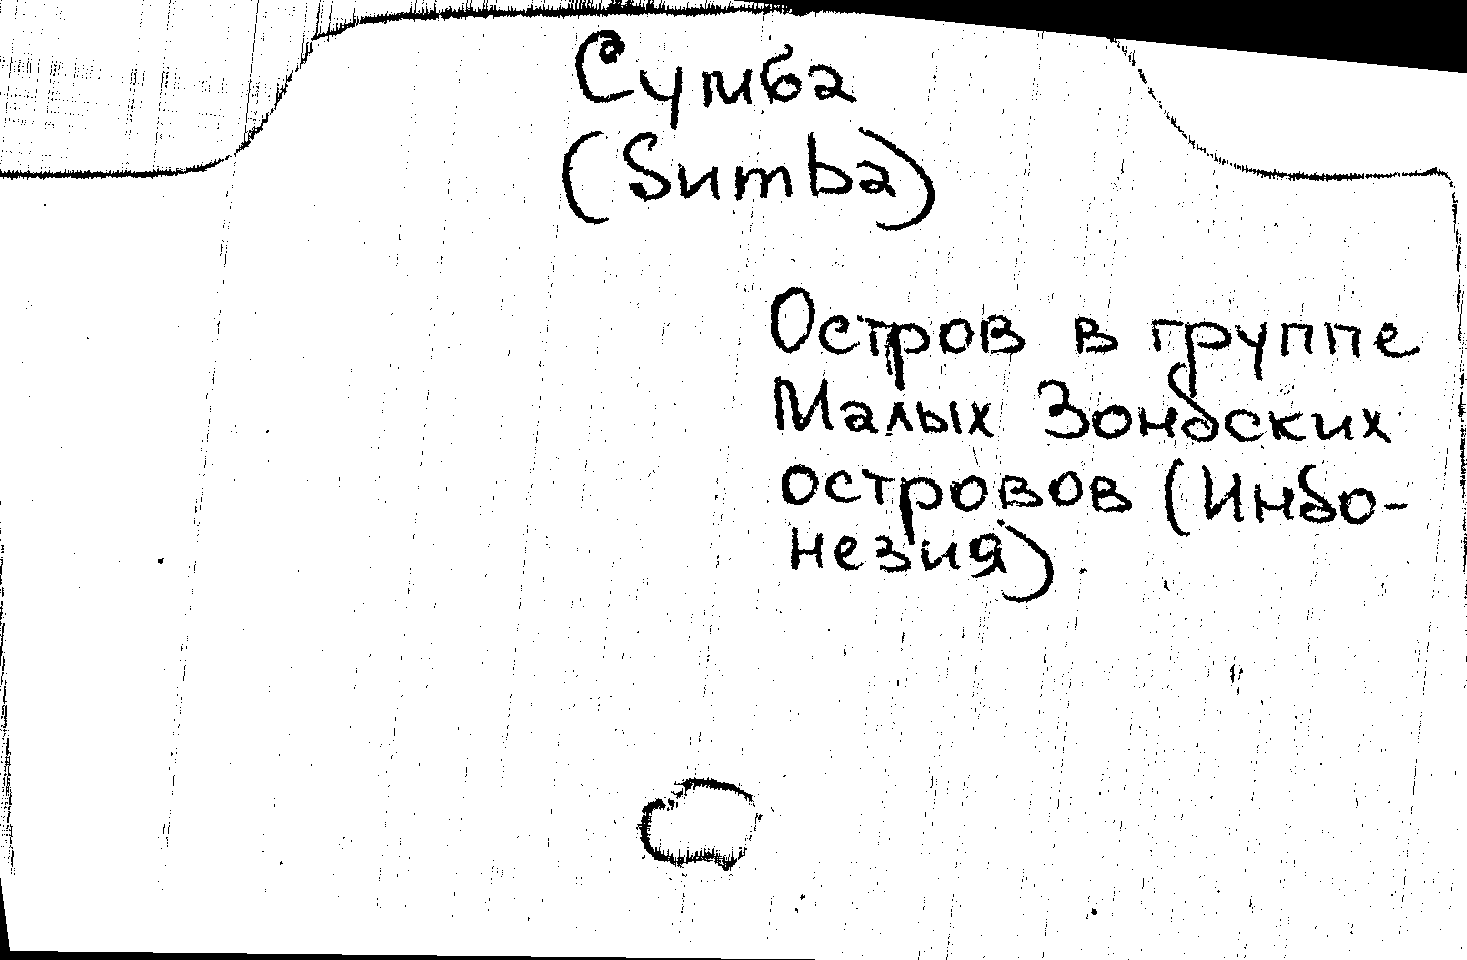 Сумба
(Sumba)
Остров в группе
Малых Зондских
островов (Индо-
незия)